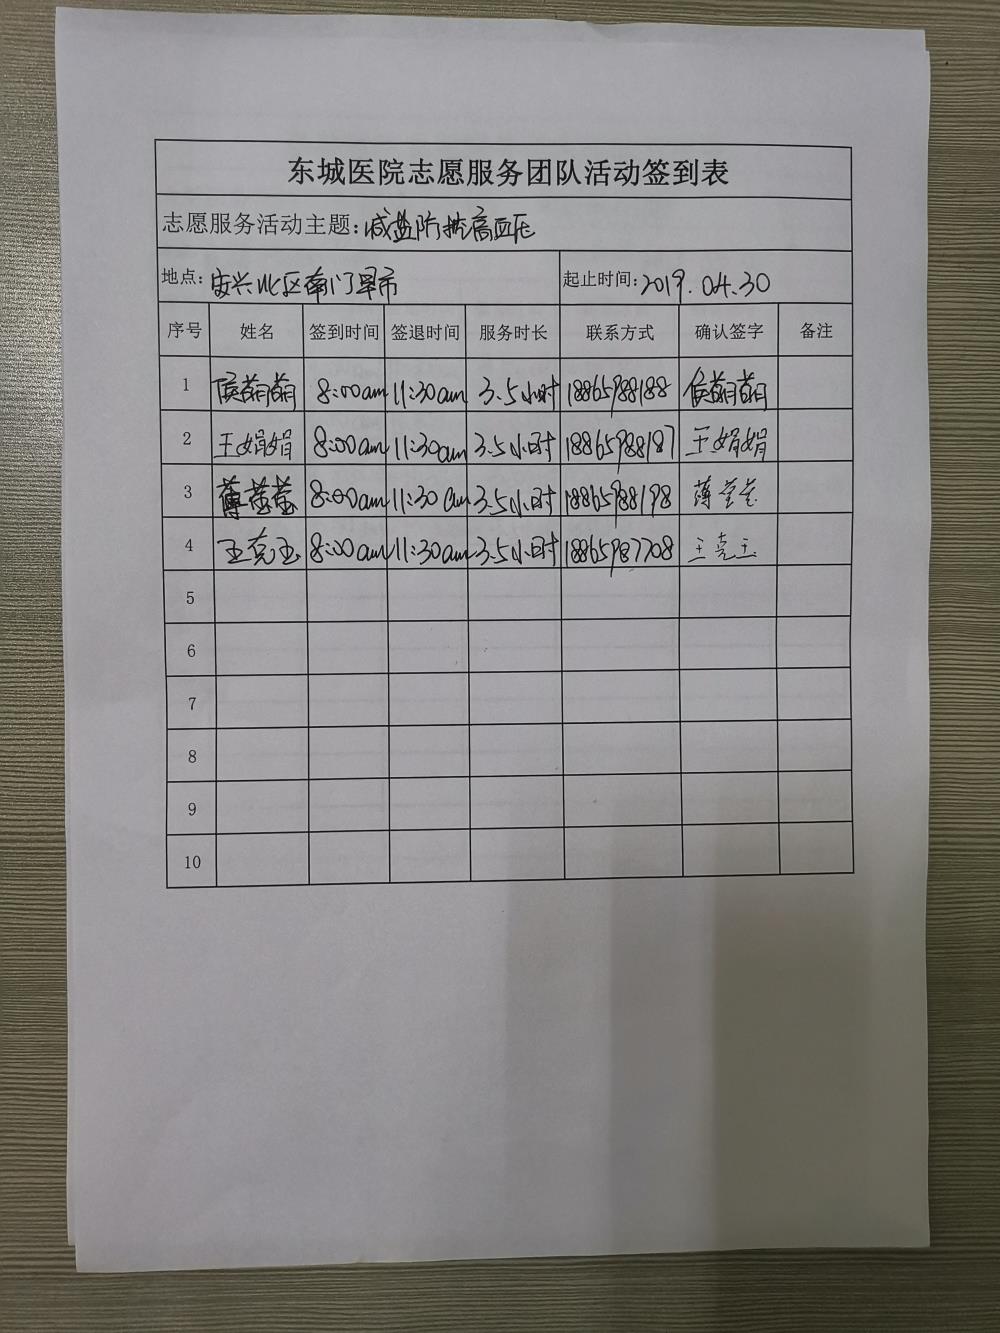 东城医院志愿服务团队活动签到表
志愿服务活动主题:减盐防控高血压
地点:安兴北区南门早市 起止时间:2019.04.30
序号 姓名 签到时间 签退时间 服务时长 联系方式 确认签字 备注
1 侯萌萌 8:00am 11:30am 3.5小时 18865988188 侯萌萌
2 王娟娟 8:00am 11:30am 3.5小时 18865988187 王娟娟
3 薄莹莹 8:00am 11:30am 3.5小时 18865988198 薄莹莹
4 王克玉 8:00am 11:30am 3.5小时 18865987708 王克玉
5
6
7
8
9
10